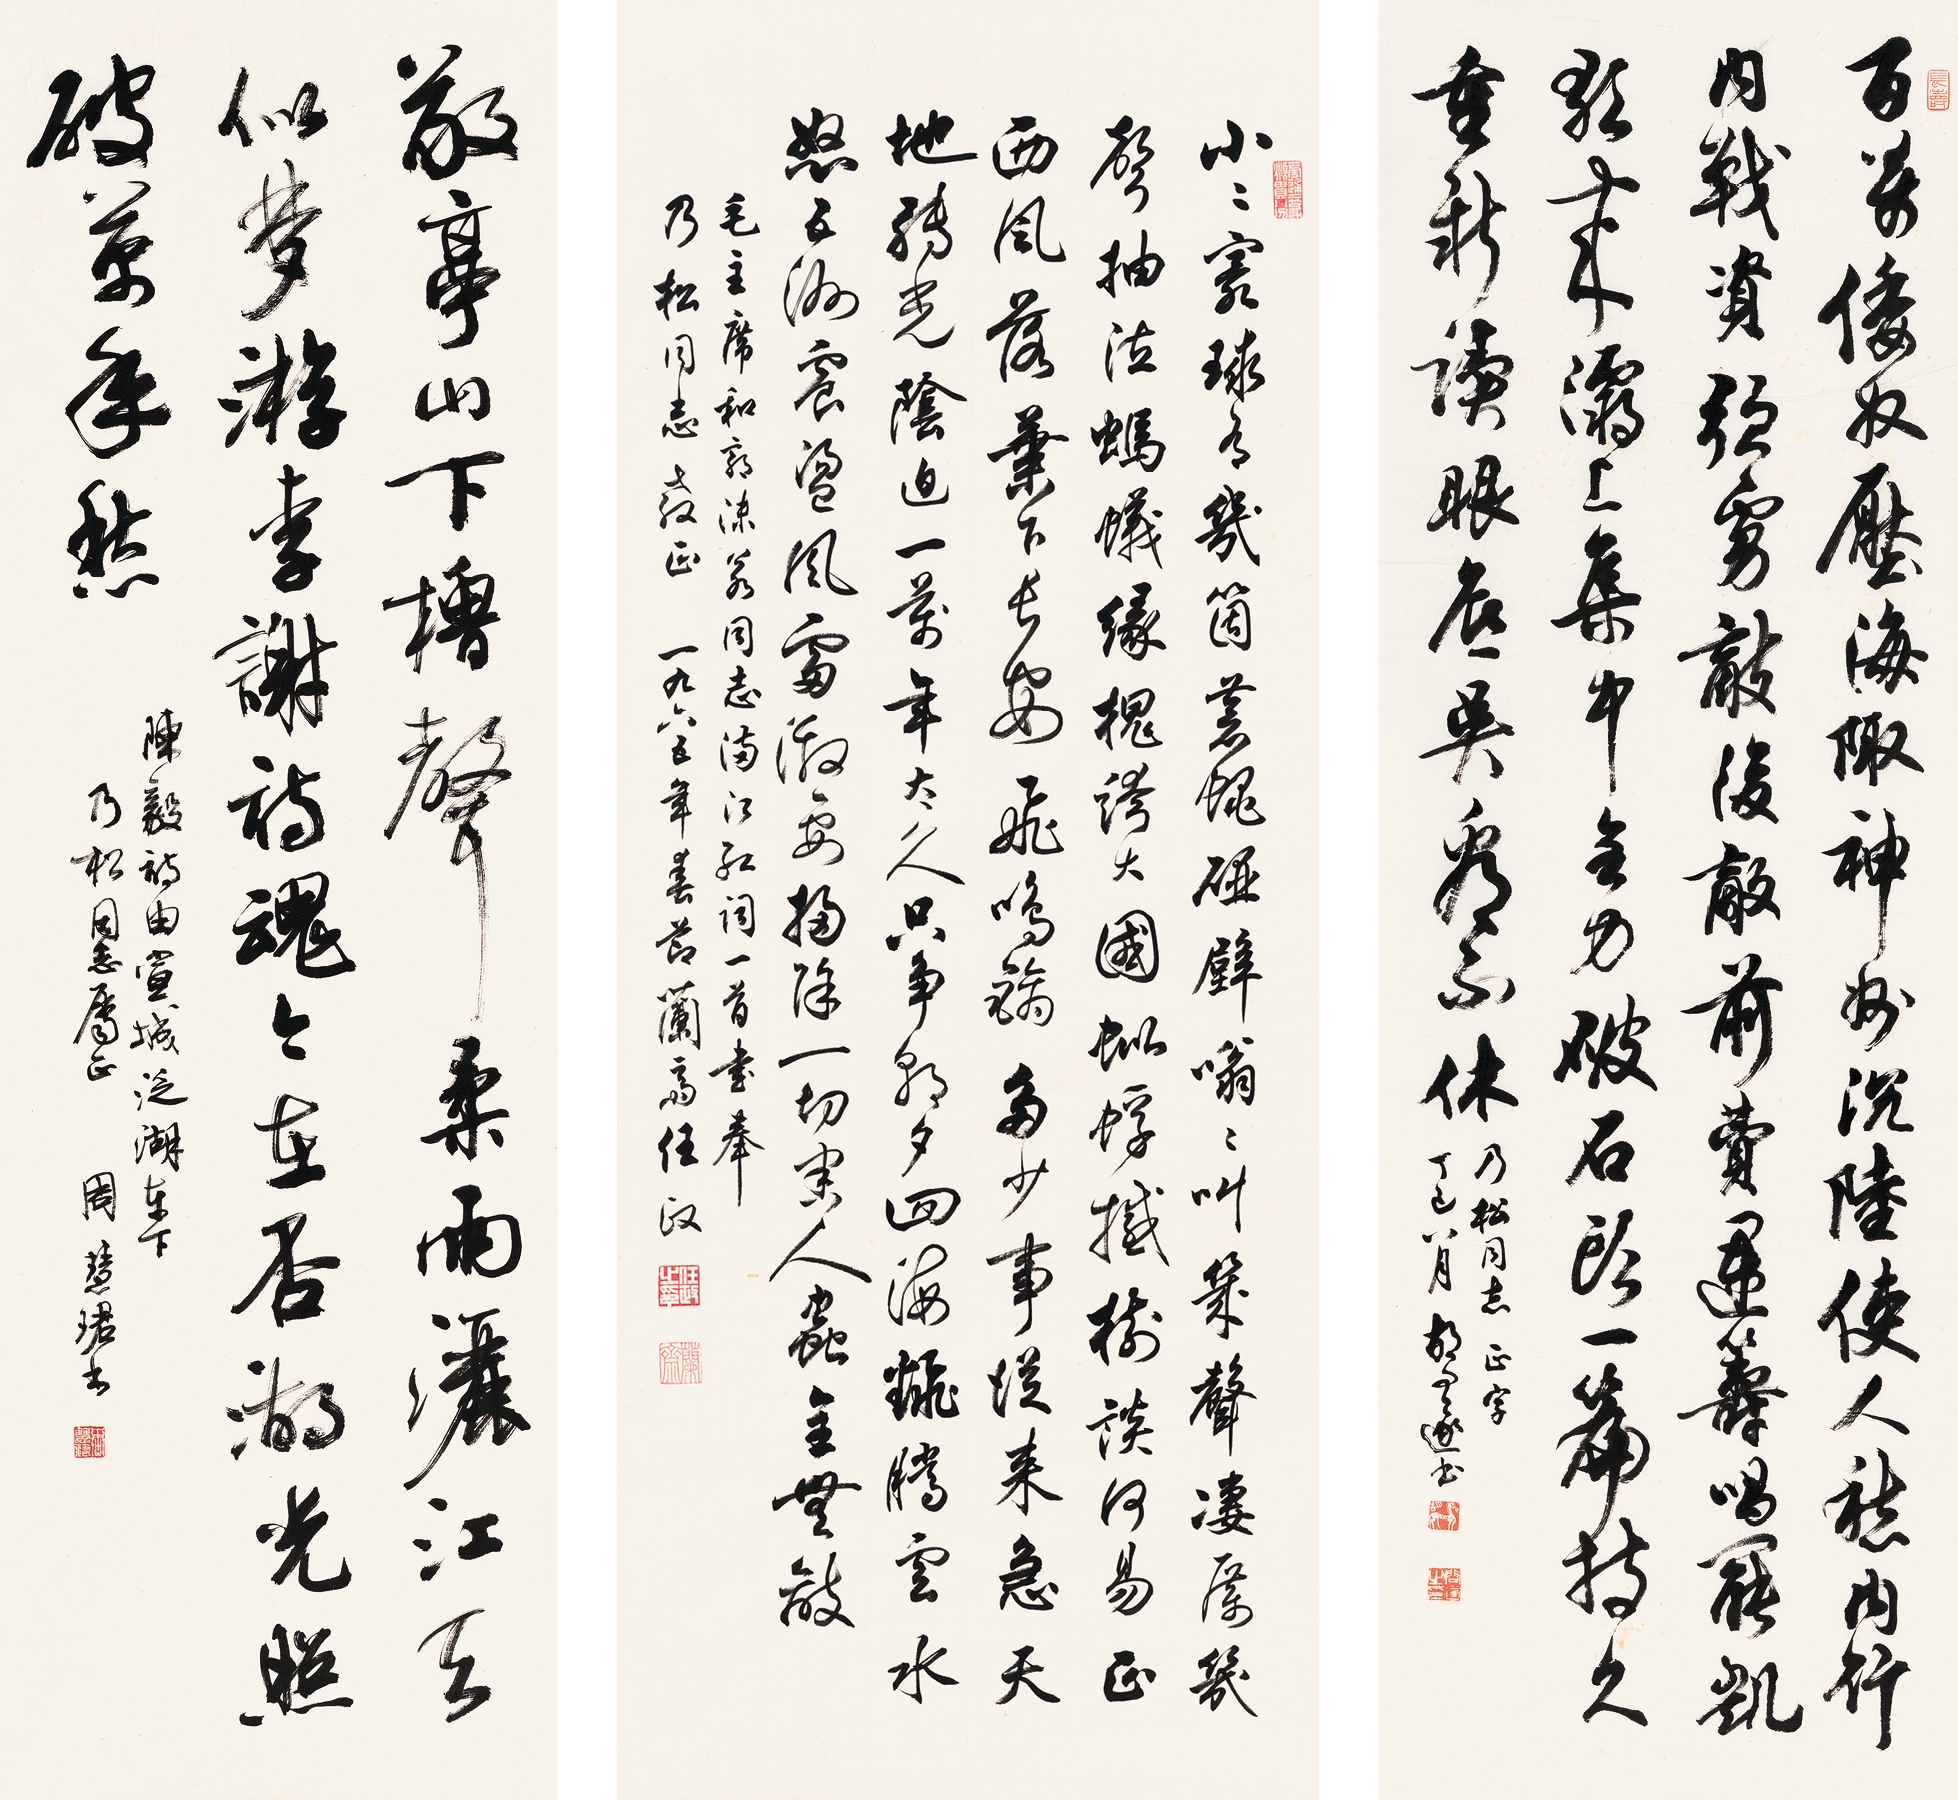 百萬倭奴壓海陬神州沉陸使人愁內行
內戰資強虜敵後敵前費運籌唱罷凱
歌來灞上集中全力破石頭一篇持久
重新讀眼底吳鈎看不休
乃松同志正字
丁巳八月胡問遂書
小〻寰球有幾箇蒼蠅碰壁嗡〻叫幾聲凄厲幾
聲抽泣螞蟻緣槐誇大國蚍蜉撼樹談何易正
西風落葉下長安飛鳴鏑多少事從來急天
地轉光陰迫一萬年太久只爭朝夕四海翻騰雲水
怒五洲震盪風雷激要掃除一切害人蟲全無敵
毛主席和郭沫若同志滿江紅詞一首書奉
乃松同志教正 一九六五年春節蘭齋任政
任政之印
蘭齋
敬亭山下櫓聲柔雨灑江天
似夢游李謝詩魂今在否湖光照
破萬年愁
陳毅詩由宣城泛湖東下
乃松同志屬正 周慧珺書